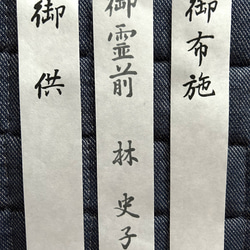 御布施
御霊前 林 史子
御供